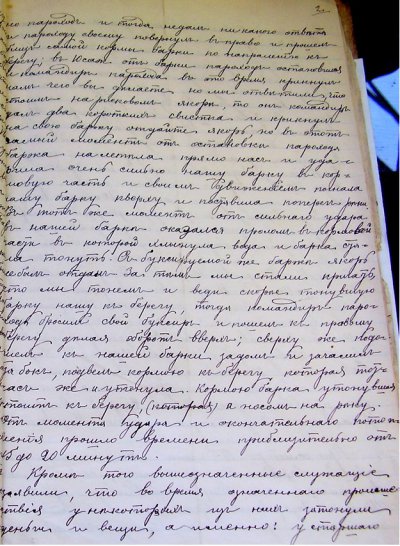 но пароходъ и тогда недалъ никакого отвѣта
и пароходу своему повернулъ въ право и прошелъ
самой кормы баржи по направленію къ
берегу; въ отъ баржи пароходъ остановился
и командиръ парохода въ это время крикнулъ
намъ чего вы думаете но мы отвѣтили, что
стоимъ на рисковомъ якорѣ, то онъ командиръ
далъ два короткихъ свистка и крикнулъ
на свою баржу отдайте якорь, но въ этотъ
самый моментъ отъ остановки парохода
баржа налетѣла прямо насъ и уда-
рила очень сильно нашу баржу въ кор-
мовую часть и своимъ движеніемъ
нашу баржу кверху и поставила поперегъ рѣки
Въ тотъ же моментъ отъ сильнаго удара
въ нашей баржи оказался проломъ въ кормовой
части въ который хлынула вода и баржа ста-
ла тонуть. Съ буксируемой же баржи якорь
небылъ отданъ. За тѣмъ мы стали кричать
что мы тонемъ и веди скорѣе тонувшую
баржу нашу къ берегу, тогда командиръ паро-
хода бросилъ свой буксиръ и пошелъ къ правому
берегу дѣлая оборотъ вверхъ; сверху же подо-
шелъ къ нашей баржи задомъ и зачалилъ
за бокъ, подвелъ кормою къ берегу которая тот-
часъ же и утонула. Кормою баржа утонувшая
стоитъ къ берегу, (которая) а носомъ на рѣку.
Отъ момента удара и окончательнаго потоп-
ленія прошло времени приблизительно отъ
15 до 20 минутъ.
Кромѣ того вышеозначенные служащіе
заявили, что во время означеннаго происше-
ствія у некоторыхъ изъ нихъ затонули
деньги и вещи, а именно: у старшаго